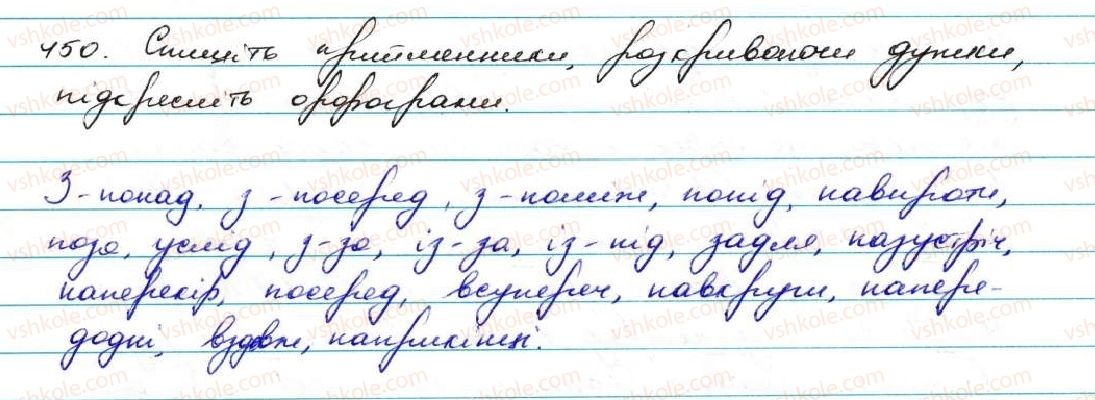 450. Спишіть прийменники, розкриваючи дужки,
підкресліть орфограми.
З-понад, з-посеред, з-поміж, понід, навпроти,
поза, услід, з-за, із-за, із-під, задля, назустріч,
наперекір, посеред, всупереч, навкруги, напере-
додні, вздовж, наприкінці.